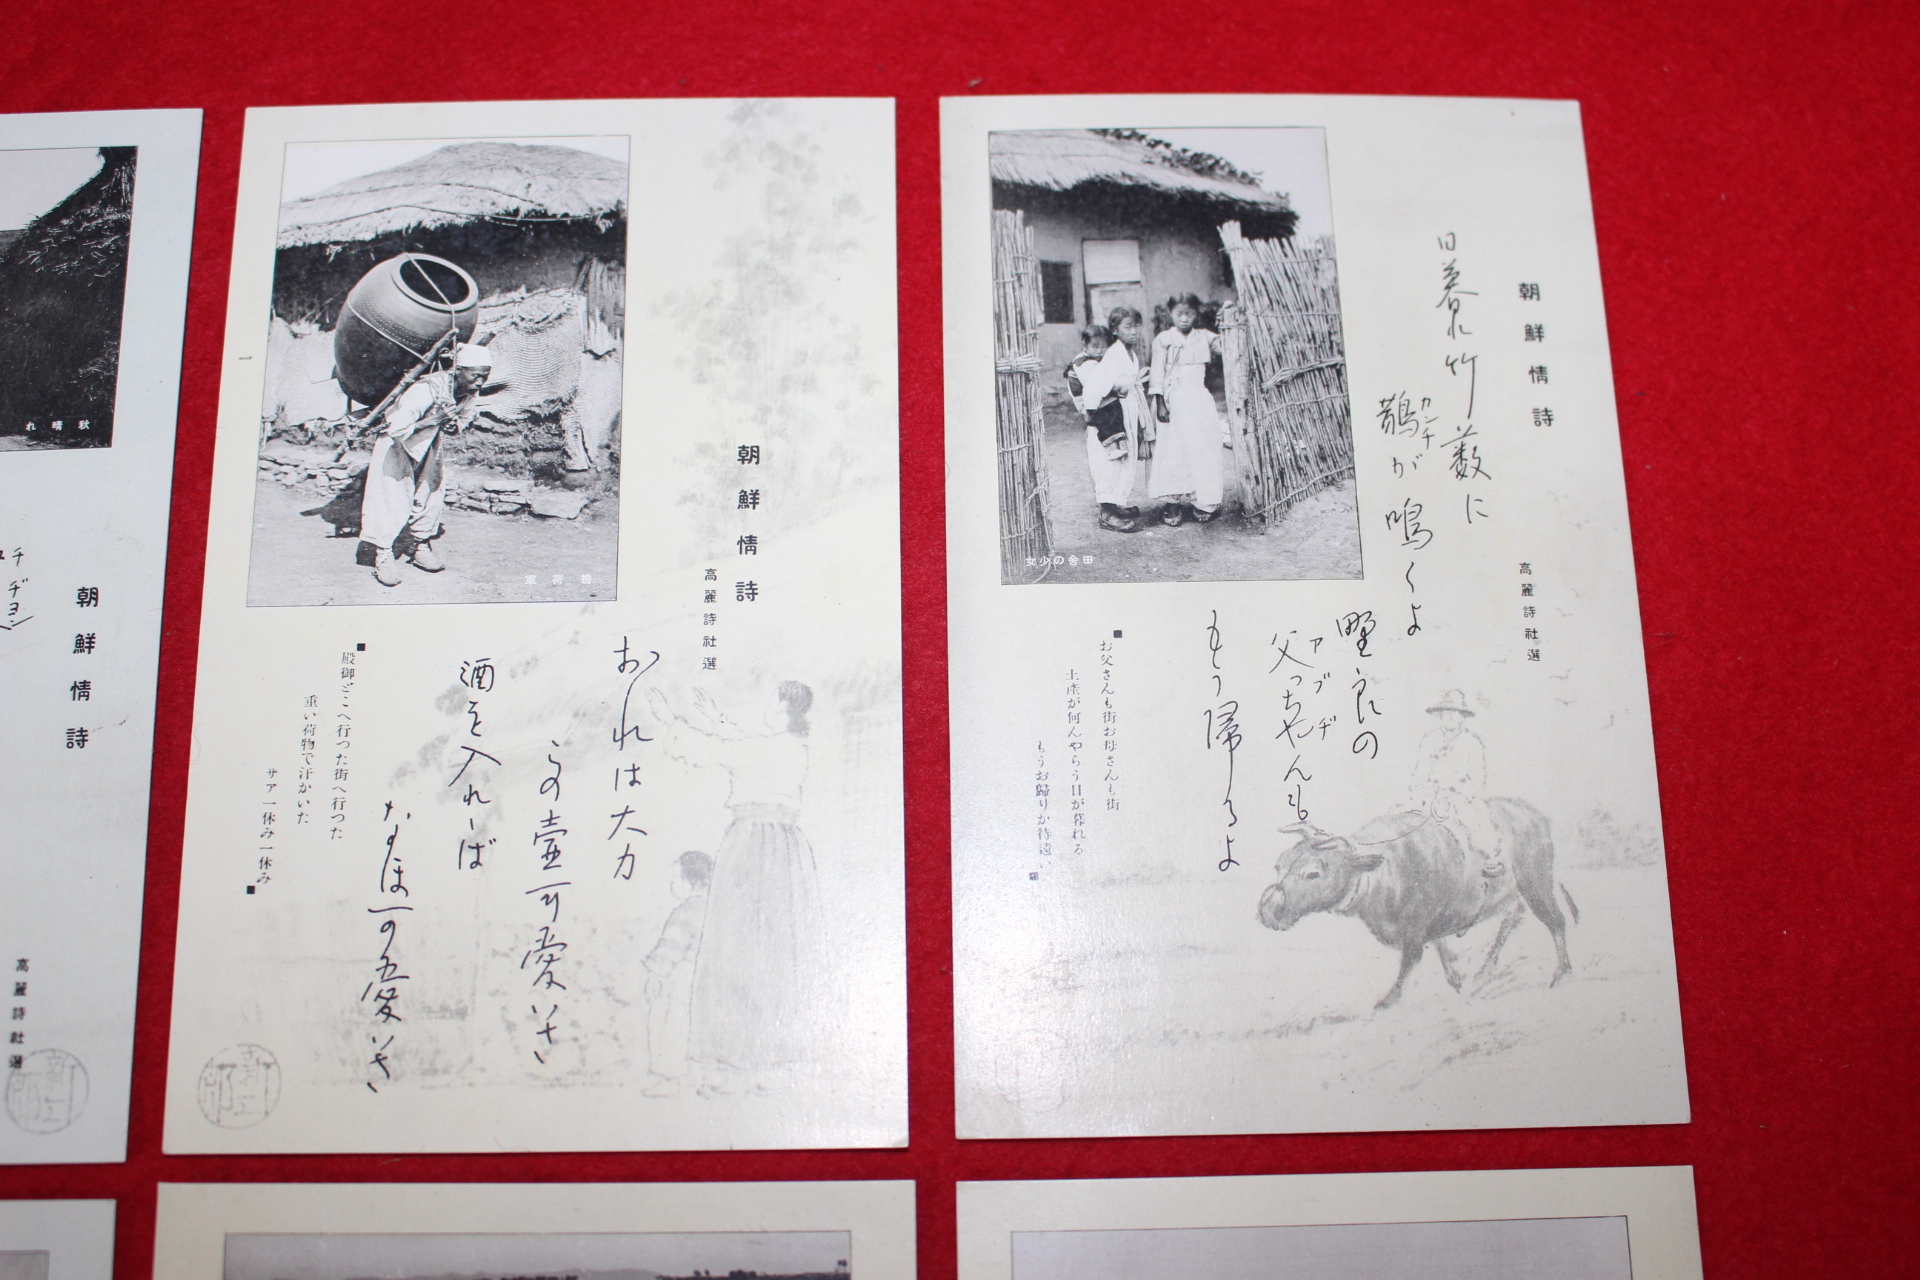 朝鮮情詩
高麗詩社選
日暮れ竹薮に
鵲が鳴くよ
カンチ
野良の
父っちゃんも
アブヂ
もう帰るよ
田舎の少女
■お父さんも街お母さんも街
土産が何んやらう日が暮れる
もうお歸りか待遠い■
朝鮮情詩
高麗詩社選
おれは大力
この壷可愛いさ
酒を入れゝば
なほ可愛いさ
擔荷軍
■殿御どこへ行つた街へ行つた
重い荷物で汗かいた
サア一休み一休み■
一
秋晴れ
朝鮮情詩
高麗詩社選